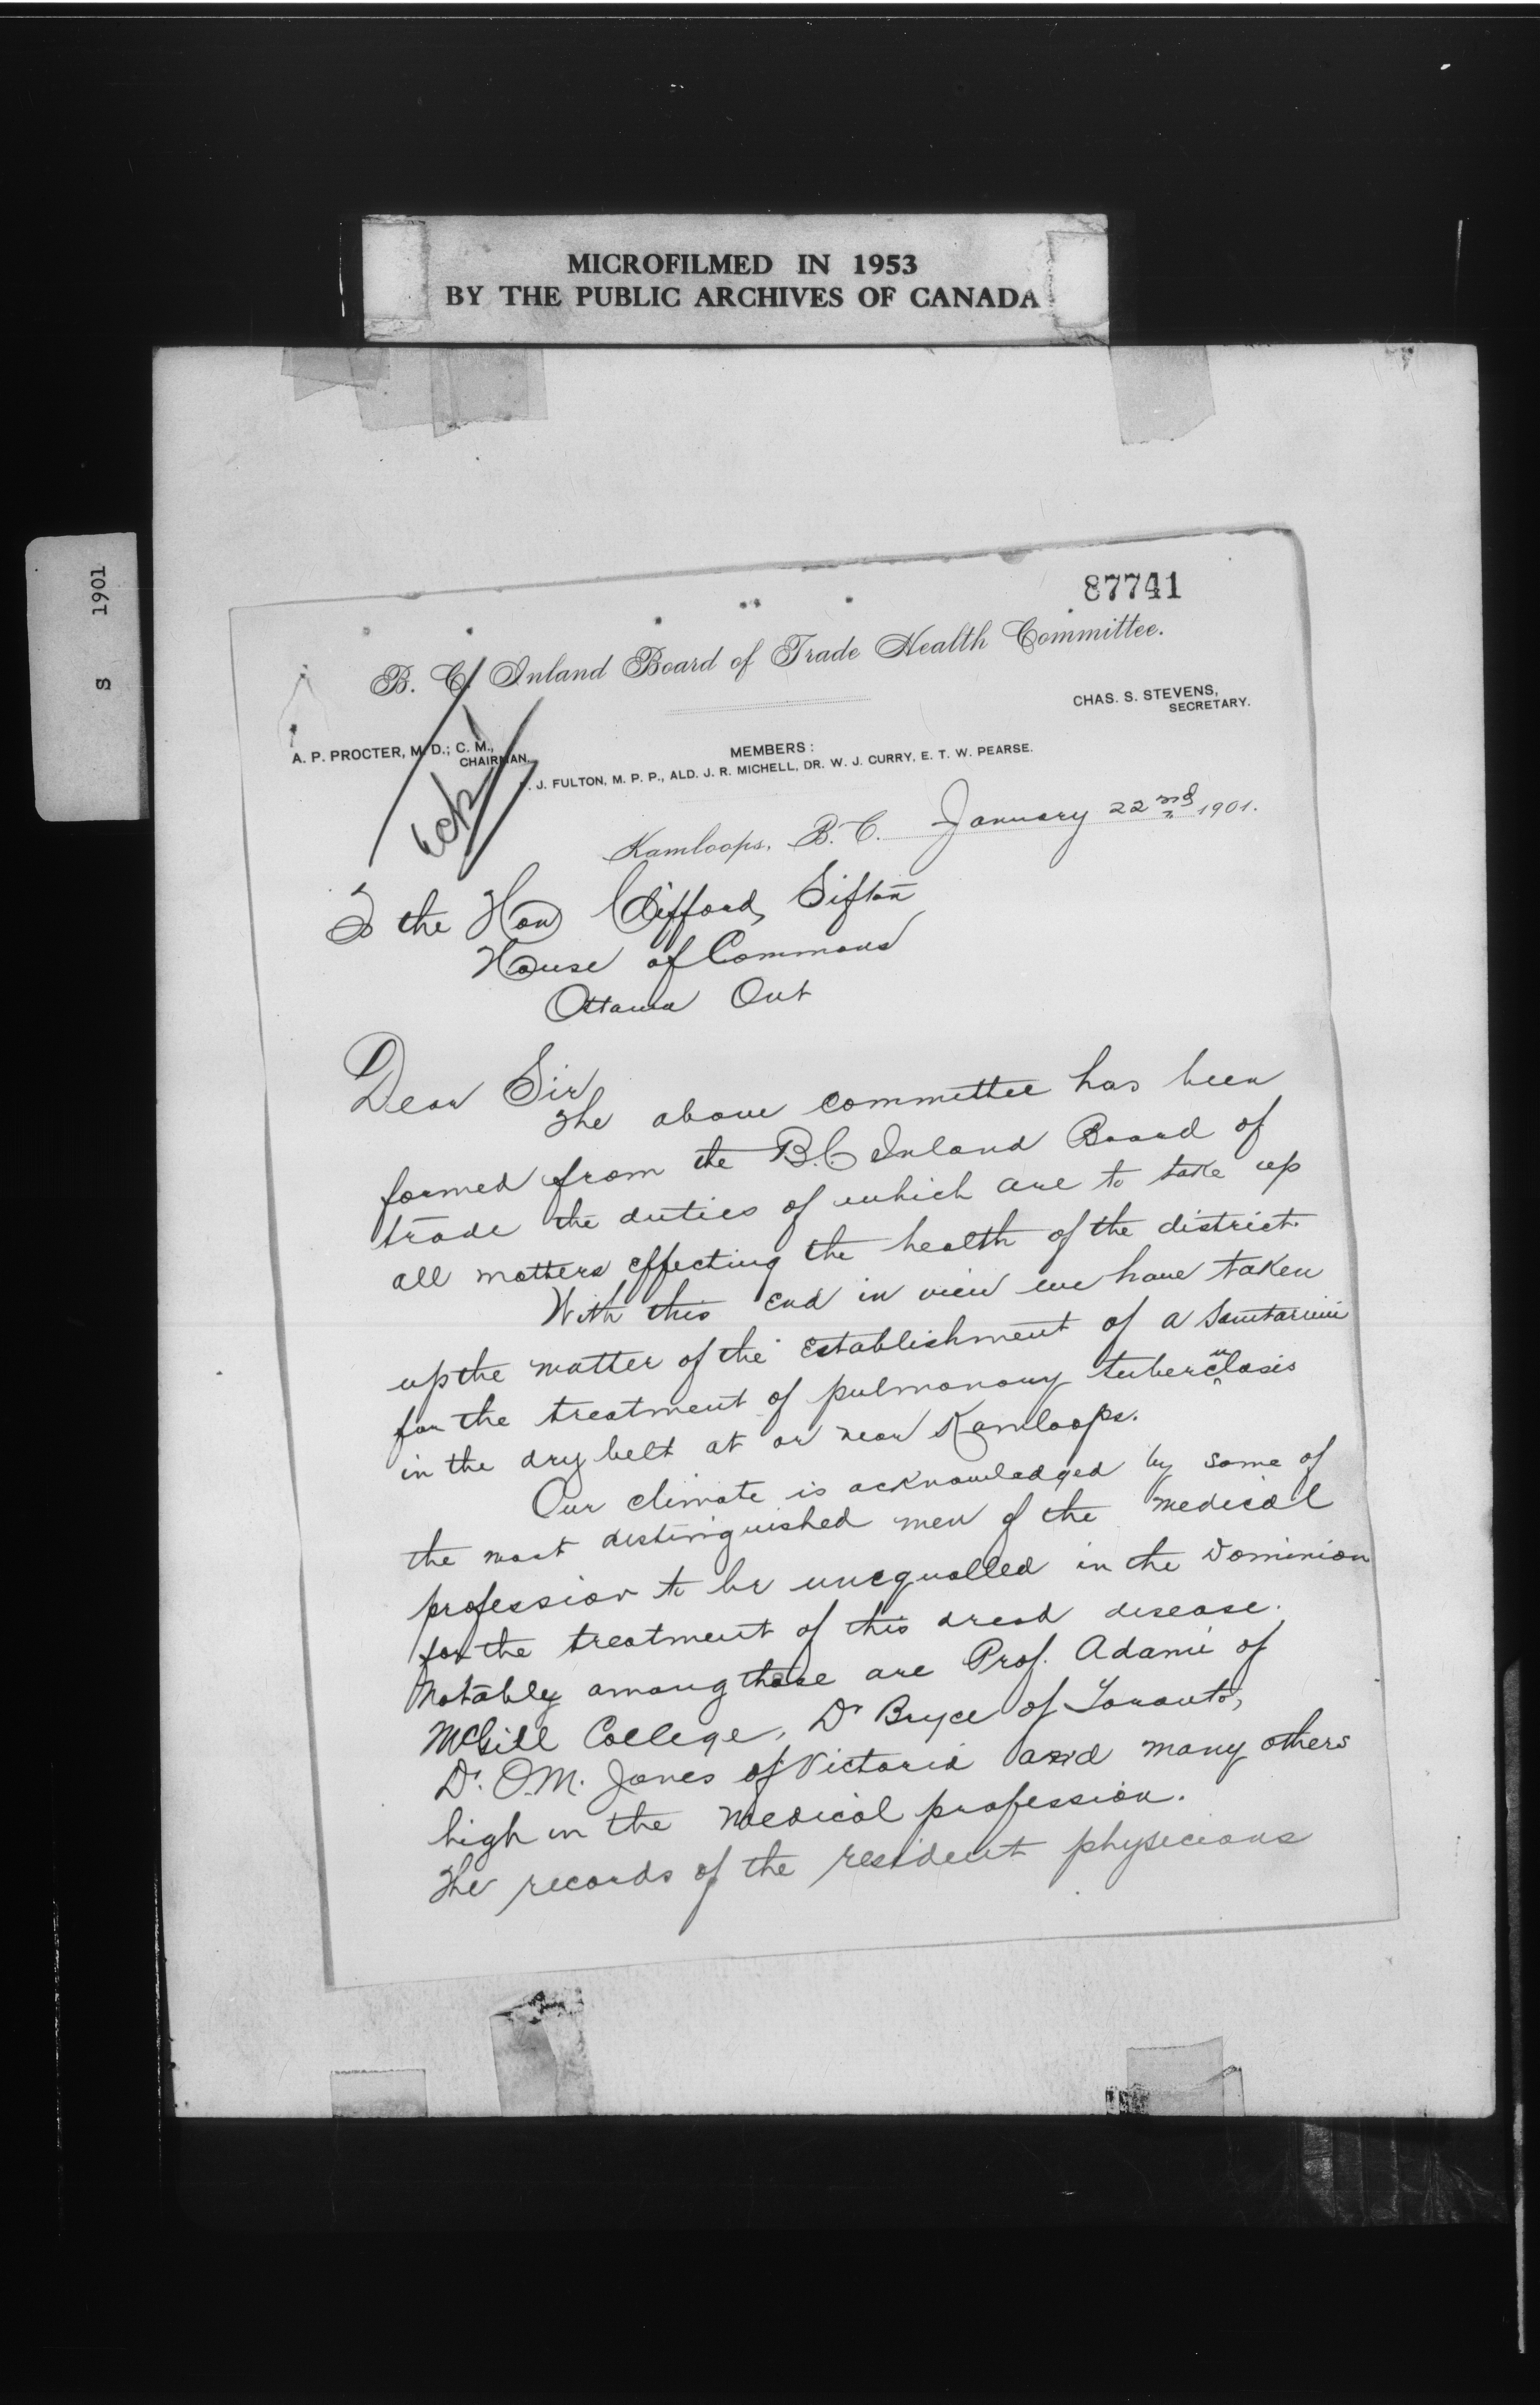 MICROFILMED IN 1953
BY THE PUBLIC ARCHIVES OF CANADA
S 1901
87741
B. C. Inland Board of Trade Health Committee.
CHAS. S. STEVENS,
SECRETARY.
A. P. PROCTER, M. D.; C. M.,
CHAIRMAN.
MEMBERS:
J. FULTON, M. P. P., ALD. J. R. MICHELL, DR. W. J. CURRY, E. T. W. PEARSE.
Kamloops, B. C. January 22nd 1901.
To the Hon Clifford Sifton
House of Commons
Ottawa Ont
Dear Sir
The above committee has been
formed from the B.C Inland Board of
trade the duties of which are to take up
all matters effecting the health of the district.
With this end in view we have taken
up the matter of the establishment of a Sanitarium
for the treatment of pulmonary tuberculosis
in the dry belt at or near Kamloops.
Our climate is acknowledged by some of
the most distinguished men of the medical
profession to be unequalled in the Dominion
for the treatment of this dread disease.
Notably among these are Prof. Adami of
McGill College, Dr Bryce of Toronto,
Dr. O.M. Jones of Victoria and many others
high in the medical profession.
The records of the resident physicians